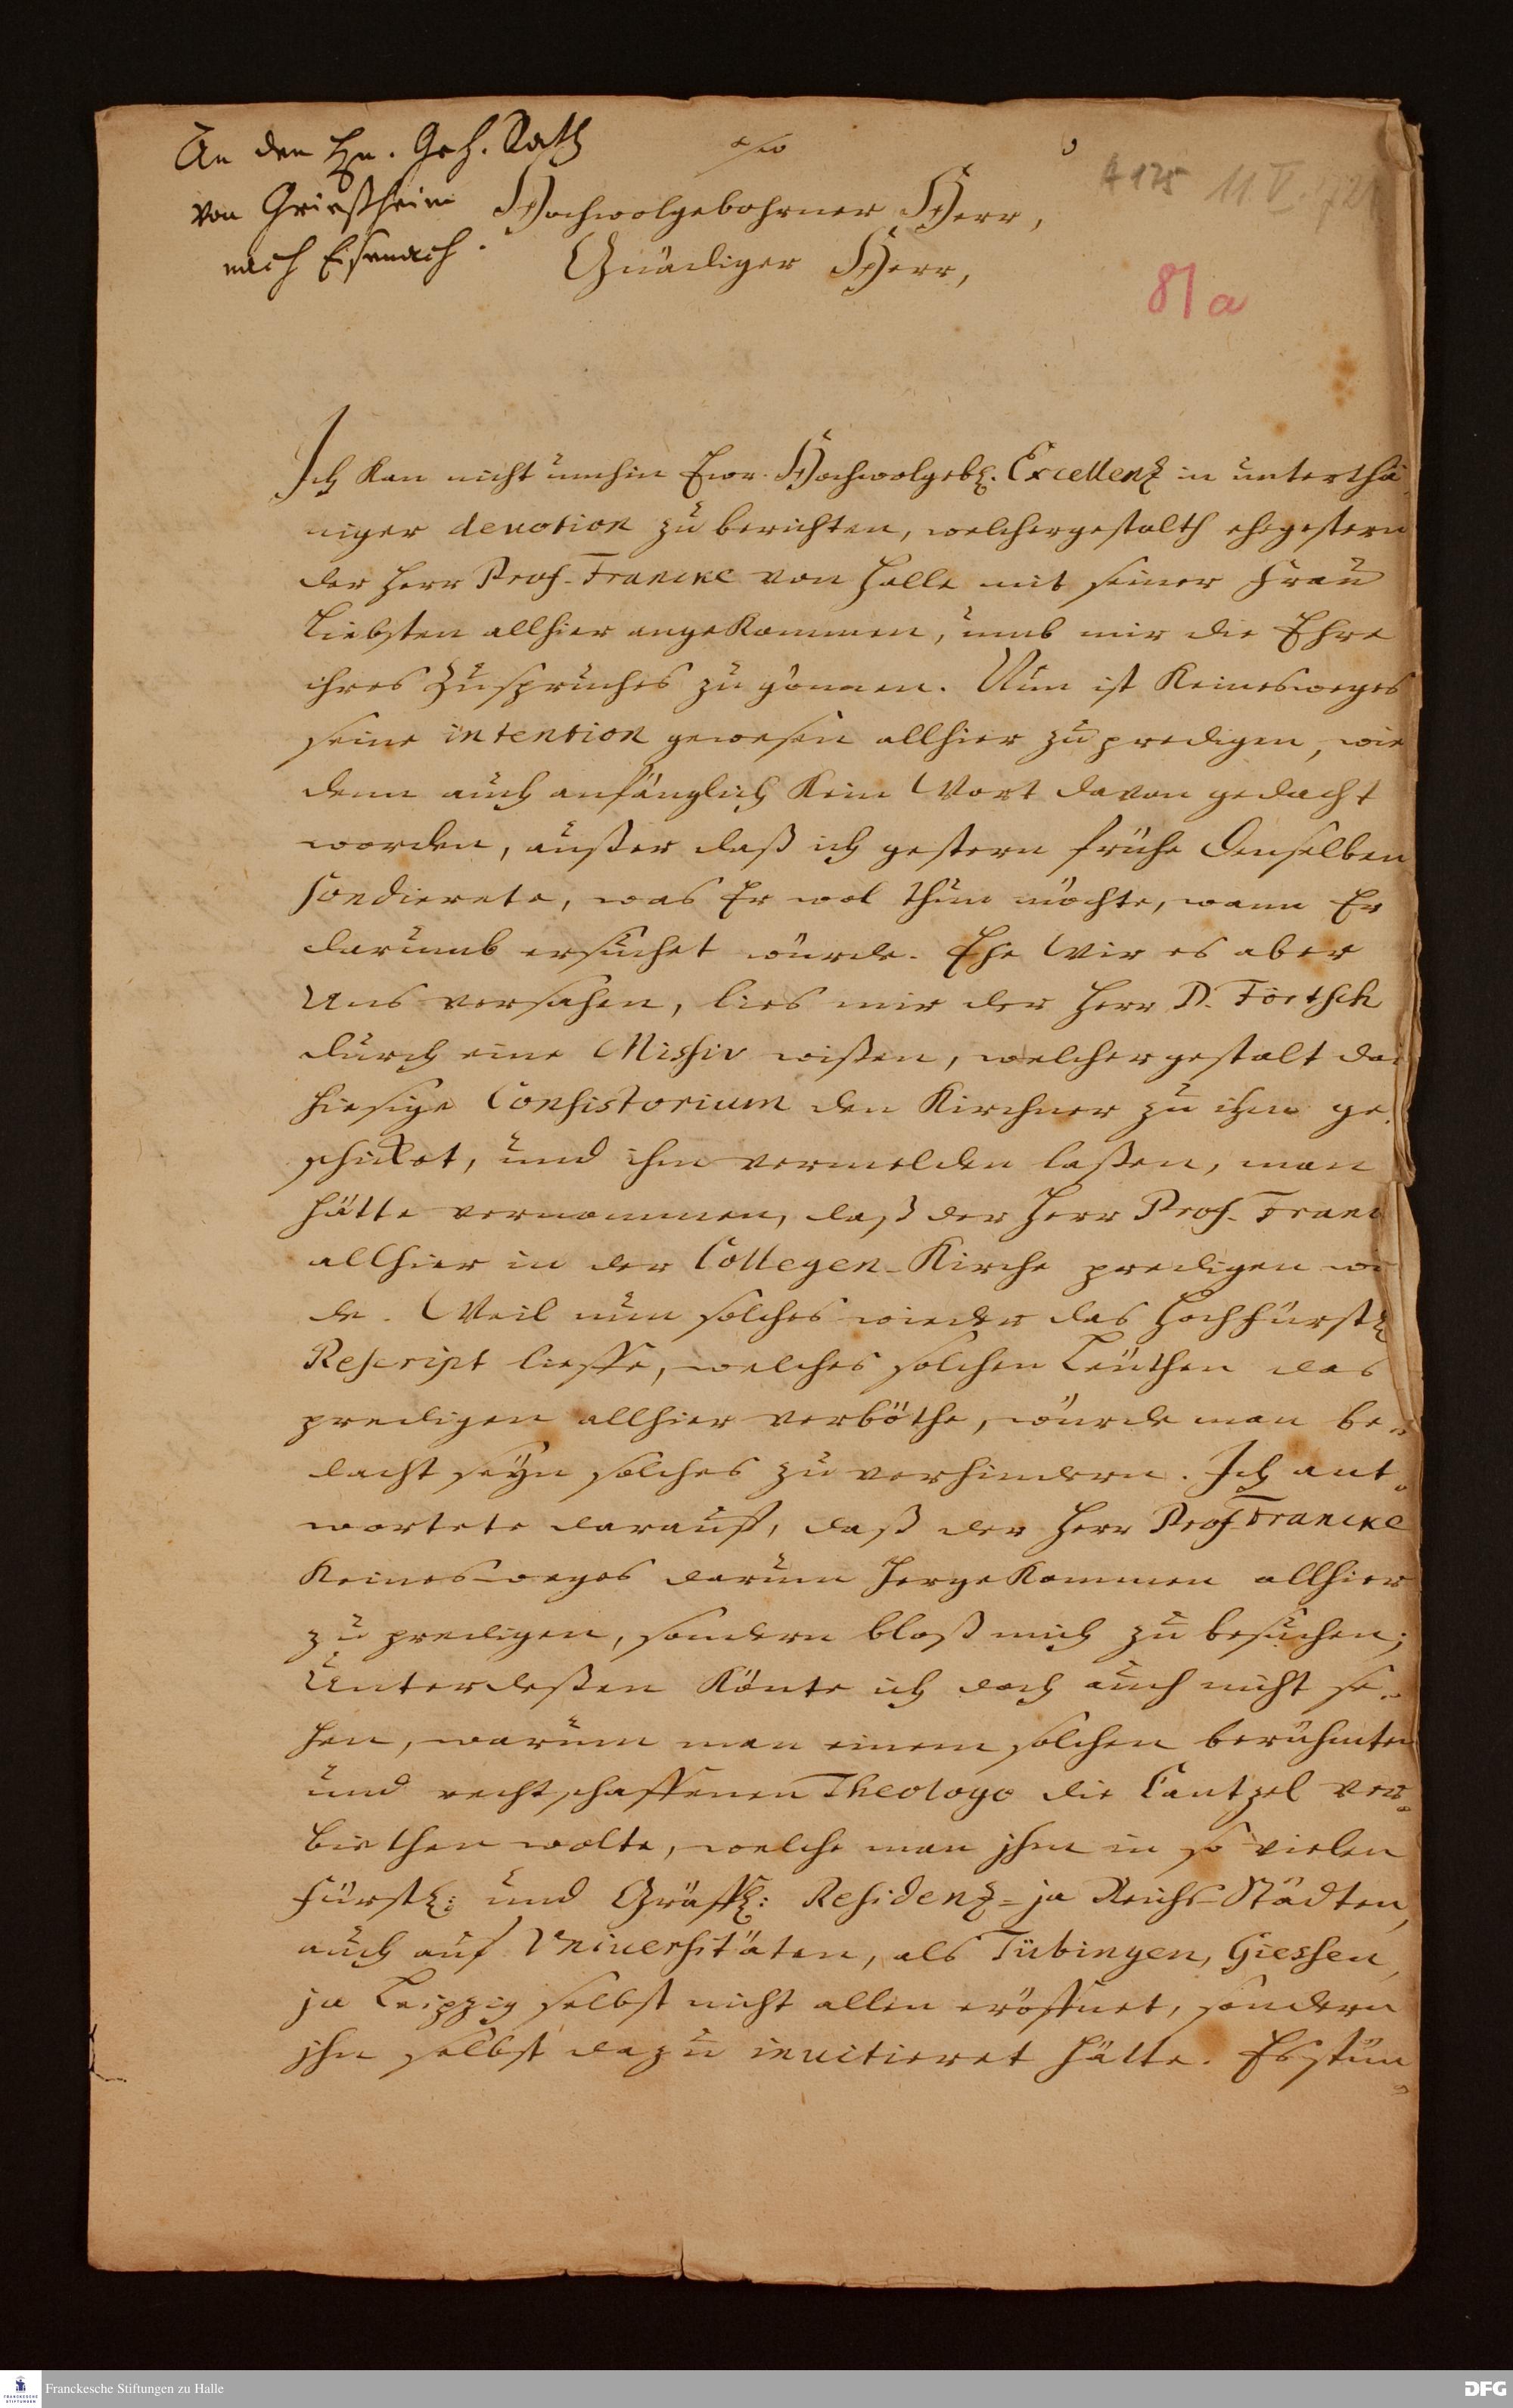 An den Hn. Geh. Rath
von Griesheim
nach Eisenach.
A 175 11. V. 172
81a
Hochwolgebohrner Herr,
Gnädiger Herr,
Ich kan nicht umhin Ewr. Hochwolgeb. Excellenz in unterthä
niger devotion zu berichten, welchergestalth ehegestern
der Herr Prof. Francke von Halle mit seiner Frau
Liebsten allhier angekommen, umb mir die Ehre
ihres Zuspruches zu gönnen. Nun ist keinesweges
seine intention gewesen allhier zu predigen, wie
denn auch anfänglich kein Wort davon gedacht
worden, außer daß ich gestern frühe Denselben
sondierete, was Er wol thun möchte, wann Er
darumb ersuchet würde. Ehe Wir es aber
Uns versahen, lies mir der Herr D. Förtsch
durch eine Missiv wißen, welchergestalt das
hiesige Consistorium den Kirchner zu ihm ge-
schicket, und ihm vermelden laßen, man
hätte vernommen, daß der Herr Prof. Franc
allhier in der Collegen-Kirche predigen wü
de. Weil nun solches wieder das Hochfürstl
Rescript lieffe, welches solchen Leuthen das
predigen allhier verböthe, würde man be-
dacht seyn solches zu verhindern. Ich ant-
wortete darauff, daß der Herr Prof Francke
keinesweges darum hergekommen allhier
zu predigen, sondern bloß mich zu besuchen;
Unterdeßen könte ich doch auch nicht se-
hen, warum man einem solchen berühmten
und rechtschaffenen Theologo die Cantzel ver-
biethen wolte, welche man jhm in so vielen
Fürstl: und Gräffl: Residenz- ja Reichs-Städten,
auch auf Universitäten, als Tübingen, Giessen,
ja Leipzig selbst nicht allein eröffnet, sondern
jhn selbst dazu invitieret hätte. Es stün-
Franckesche Stiftungen zu Halle
FRANCKESCHE
STIFTUNGEN
DFG